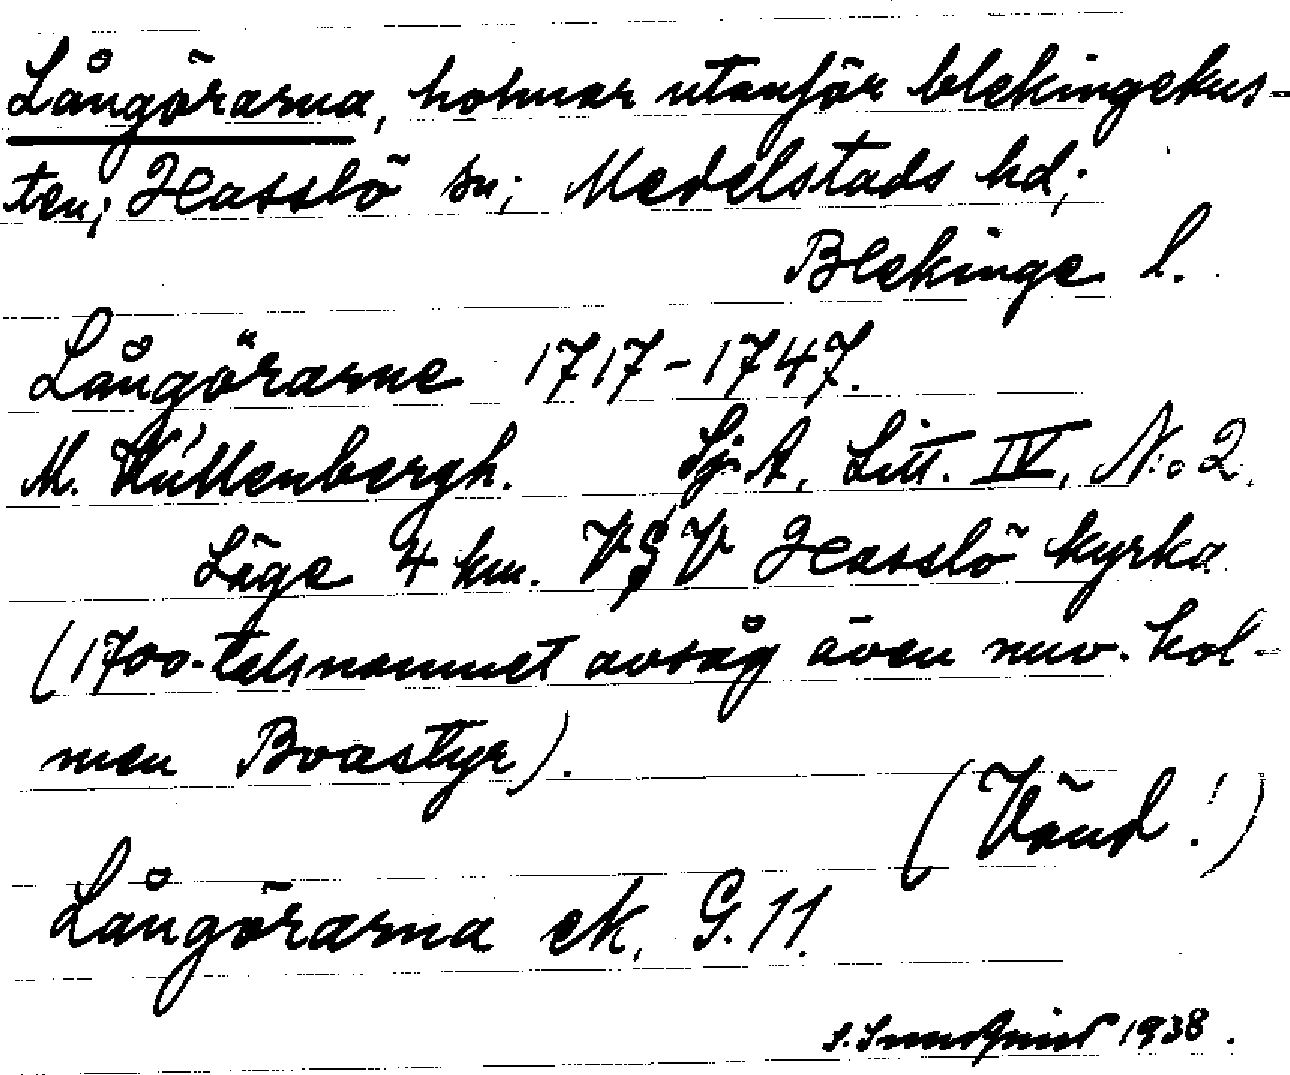 Långörarna, holmar utanför blekingekus-
ten; Hasslö sn; Medelstads hd;
Blekinge l.
Långörarne 1717-1747.
M. Küllenbergh. Sj. A. Litt. IV, No 2.
Läge 4 km. VSV Hasslö kyrka
(1700-talsnamnet avsåg även nuv. hol-
men Boastyr).
(Vänd!)
Långörarna ek. G. 11.
S. Sundquist 1938.